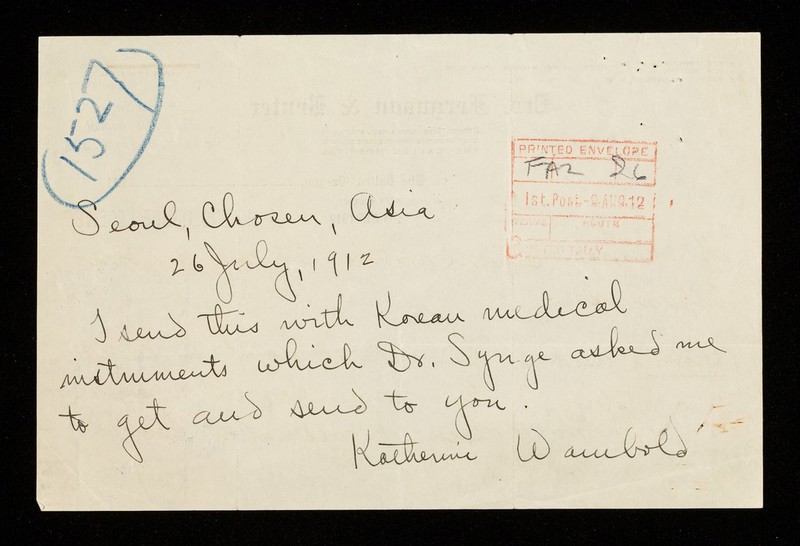 1527
PRINTED ENVELOPE
1st. Post-9 AUG.12
Seoul, Chosen, Asia
26 July, 1912
I send this with Korean medical
instruments which Dr. Synge asked me
to get and send to you.
Katherine Wambold